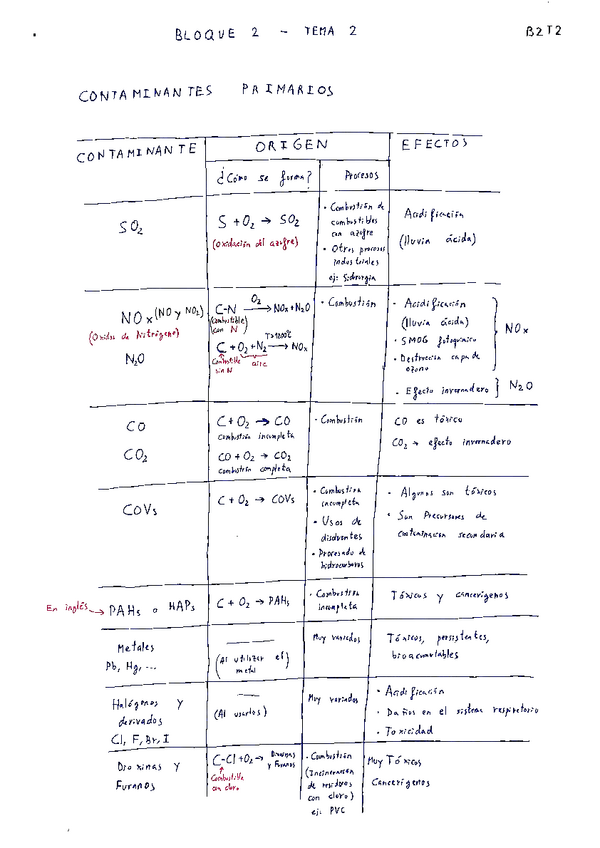 BLOQUE 2 - TEMA 2
B2T2
CONTAMINANTES PRIMARIOS
CONTAMINANTE
ORIGEN
EFECTOS
¿Cómo se forma?
Procesos
SO2
S + O2 → SO2
(Oxidación del azufre)
· Combustión de
combustibles
con azufre
· Otros procesos
industriales
ej: Siderurgia
Acidificación
(lluvia ácida)
NOx (NO y NO2)
(Óxidos de Nitrógeno)
N2O
C-N O2→ NOx + N2O
(combustible
con N)
T>1200ºC
C + O2 + N2 → NOx
Combustible
sin N
aire
· Combustión
· Acidificación
(lluvia ácida)
· SMOG fotoquímico
· Destrucción capa de
ozono
NOx
· Efecto invernadero } N2O
CO
CO2
C + O2 → CO
combustión incompleta
CO + O2 → CO2
combustión completa
· Combustión
CO es tóxico
CO2 → efecto invernadero
COVs
C + O2 → COVs
· Combustión
incompleta
· Usos de
disolventes
· Procesado de
hidrocarburos
· Algunos son tóxicos
· Son Precursores de
contaminación secundaria
En inglés → PAHs o HAPs
C + O2 → PAHs
· Combustión
incompleta
Tóxicos y cancerígenos
Metales
Pb, Hg, ...
(Al utilizar el
metal)
Muy variados
Tóxicos, persistentes,
bioacumulables
Halógenos y
derivados
Cl, F, Br, I
(Al usarlos)
Muy variados
· Acidificación
· Daños en el sistema respiratorio
· Toxicidad
Dioxinas y
Furanos
C-Cl + O2 → Dioxinas
y Furanos
Combustible
con cloro
· Combustión
(Incineración
de residuos
con cloro)
ej: PVC
Muy Tóxicos
Cancerígenos